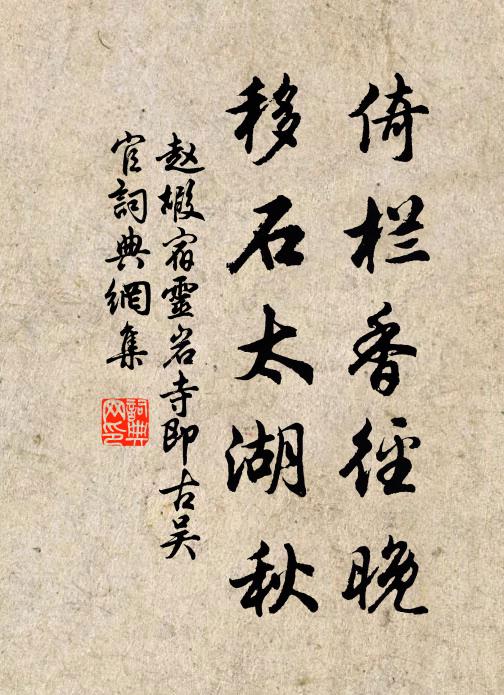 倚栏香径晚
移石太湖秋
赵嘏宿靈岩寺即古吴
官詞典網集
詞典网印